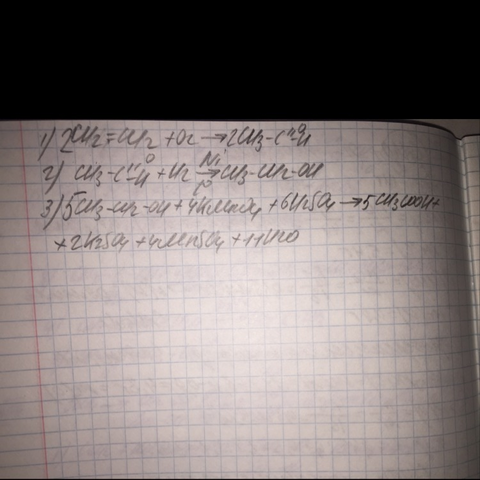 1) 2CH2=CH2 + O2 → 2CH3-C=O-H
2) CH3-C=O-H + H2 Ni→t° CH3-CH2-OH
3) 5CH3-CH2-OH + 4KMnO4 + 6H2SO4 → 5CH3COOH +
+ 2K2SO4 + 4MnSO4 + 11H2O